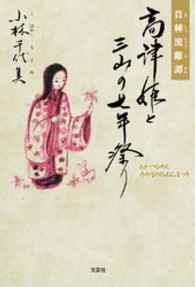 貴種流離譚
高津姫と
三山の七年祭り
小林千代美
文芸社